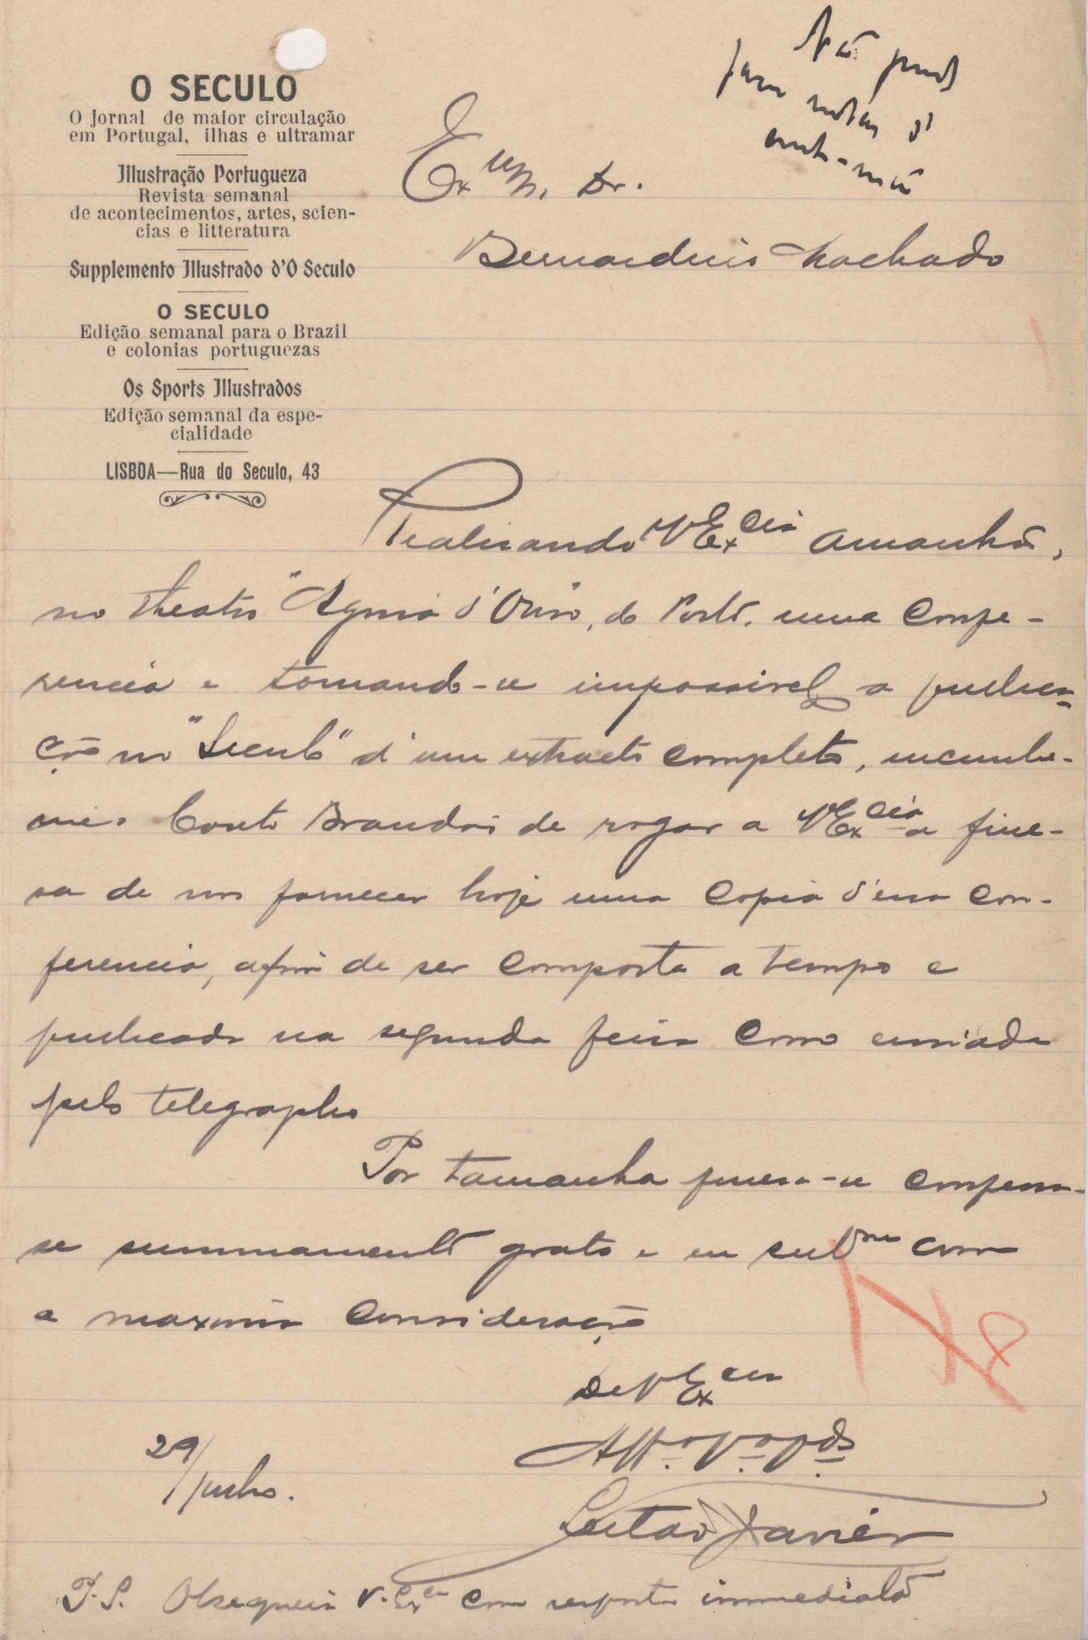 O SECULO
O Jornal de maior circulação
em Portugal, ilhas e ultramar
Illustração Portugueza
Revista semanal
de acontecimentos, artes, scien-
cias e litteratura
Supplemento Illustrado d'O Seculo
O SECULO
Edição semanal para o Brazil
e colonias portuguezas
Os Sports Illustrados
Edição semanal da espe-
cialidade
LISBOA—Rua do Seculo, 43
Não
ante-mão
Exmo. Dr.
Bernardino Machado
Realisando V Excia amanhã,
no theatro "Aguia d'Ouro", do Porto, uma confe-
rencia e tornando-se impossivel a publica-
ção no "Seculo" d'um extracto completo, incumbe-
me o Couto Brandão de rogar a V Excia a fine-
sa de nos fornecer hoje uma copia d'essa con-
ferencia, afim de ser composta a tempo e
publicada na segunda feira como enviada
pelo telegrapho
Por tamanha finesa se confessa-
se summamente grato e eu subme com
a maxima consideração
De V Excia
Atto. Vor. Obdo.
Leitão Xavier
29/Junho.
P.S. Obsequeia V. Excia com resposta immediata